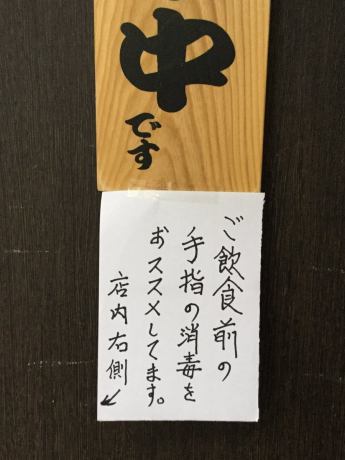 中
です
ご飲食前の
手指の消毒を
おススメしてます。
店内右側